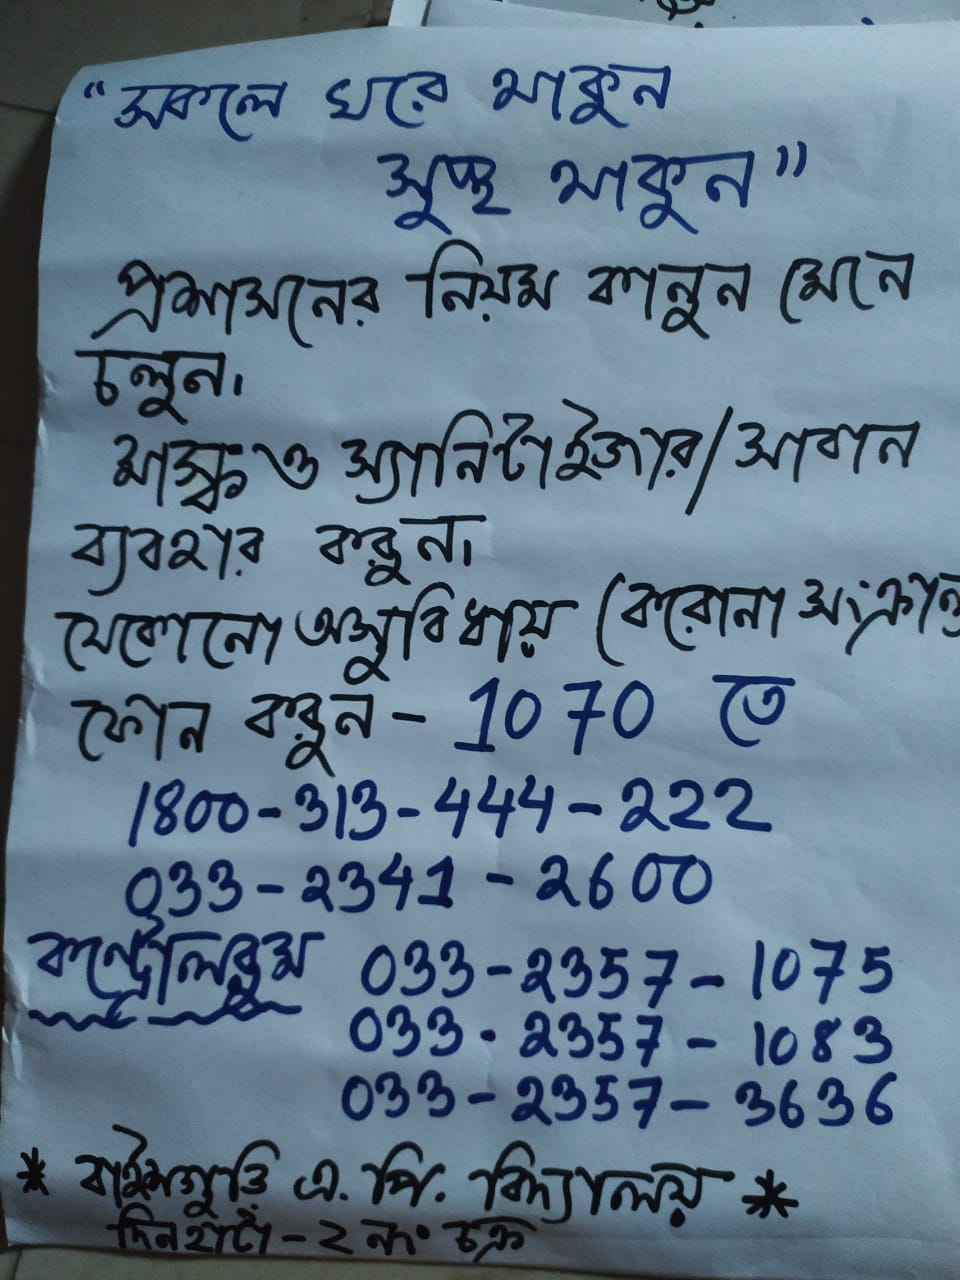 “সকলে ঘরে থাকুন
সুস্থ থাকুন”
প্রশাসনের নিয়ম কানুন মেনে
চলুন।
মাস্ক ও স্যানিটাইজার/সাবান
ব্যবহার করুন।
যেকোনো অসুবিধায় (করোনা সংক্রান্ত
ফোন করুন - 1070 তে
1800-313-444-222
033-2341-2600
কন্ট্রোলরুম 033-2357-1075
033-2357-1083
033-2357-3636
* এ. পি. বিদ্যালয় *
দিনহাটা - ২ নং চক্র